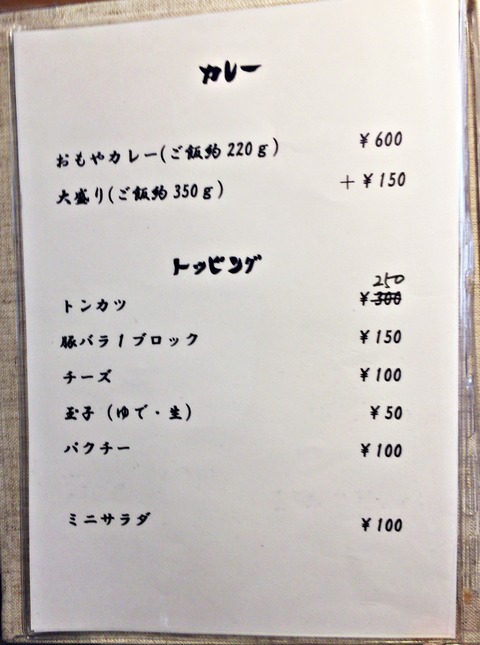 カレー
おもやカレー(ご飯約220g) ¥600
大盛り(ご飯約350g) +¥150
トッピング
250
トンカツ ¥300
豚バラ1ブロック ¥150
チーズ ¥100
玉子(ゆで・生) ¥50
パクチー ¥100
ミニサラダ ¥100